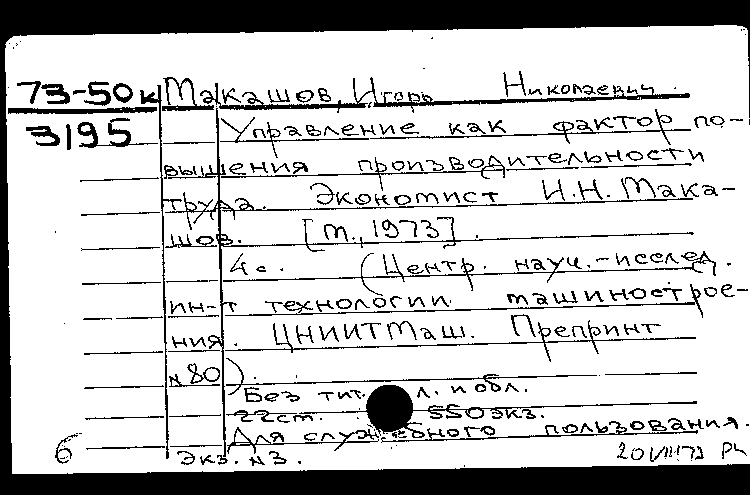 73-50к Макашов, Игорь Николаевич.
3195 Управление как фактор по-
вышения производительности
труда. Экономист И.Н. Мака-
шов. [М., 1973].
4с. (Центр. науч.-исслед.
ин-т технологии машинострое-
ния. ЦНИИТМаш. Препринт
№80).
Без тит. л. и обл.
22ст. 550экз.
Для служебного пользования.
б Экз. №3.